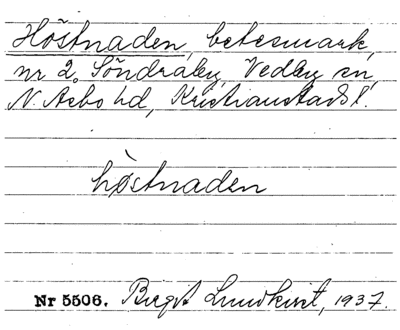 Höstnaden, betesmark,
nr 2, Söndråby, Vedby sn,
N. Åsbo hd, Kristianstads l.
hòstnaden
Nr 5506. Birgit Lundkvist, 1937.